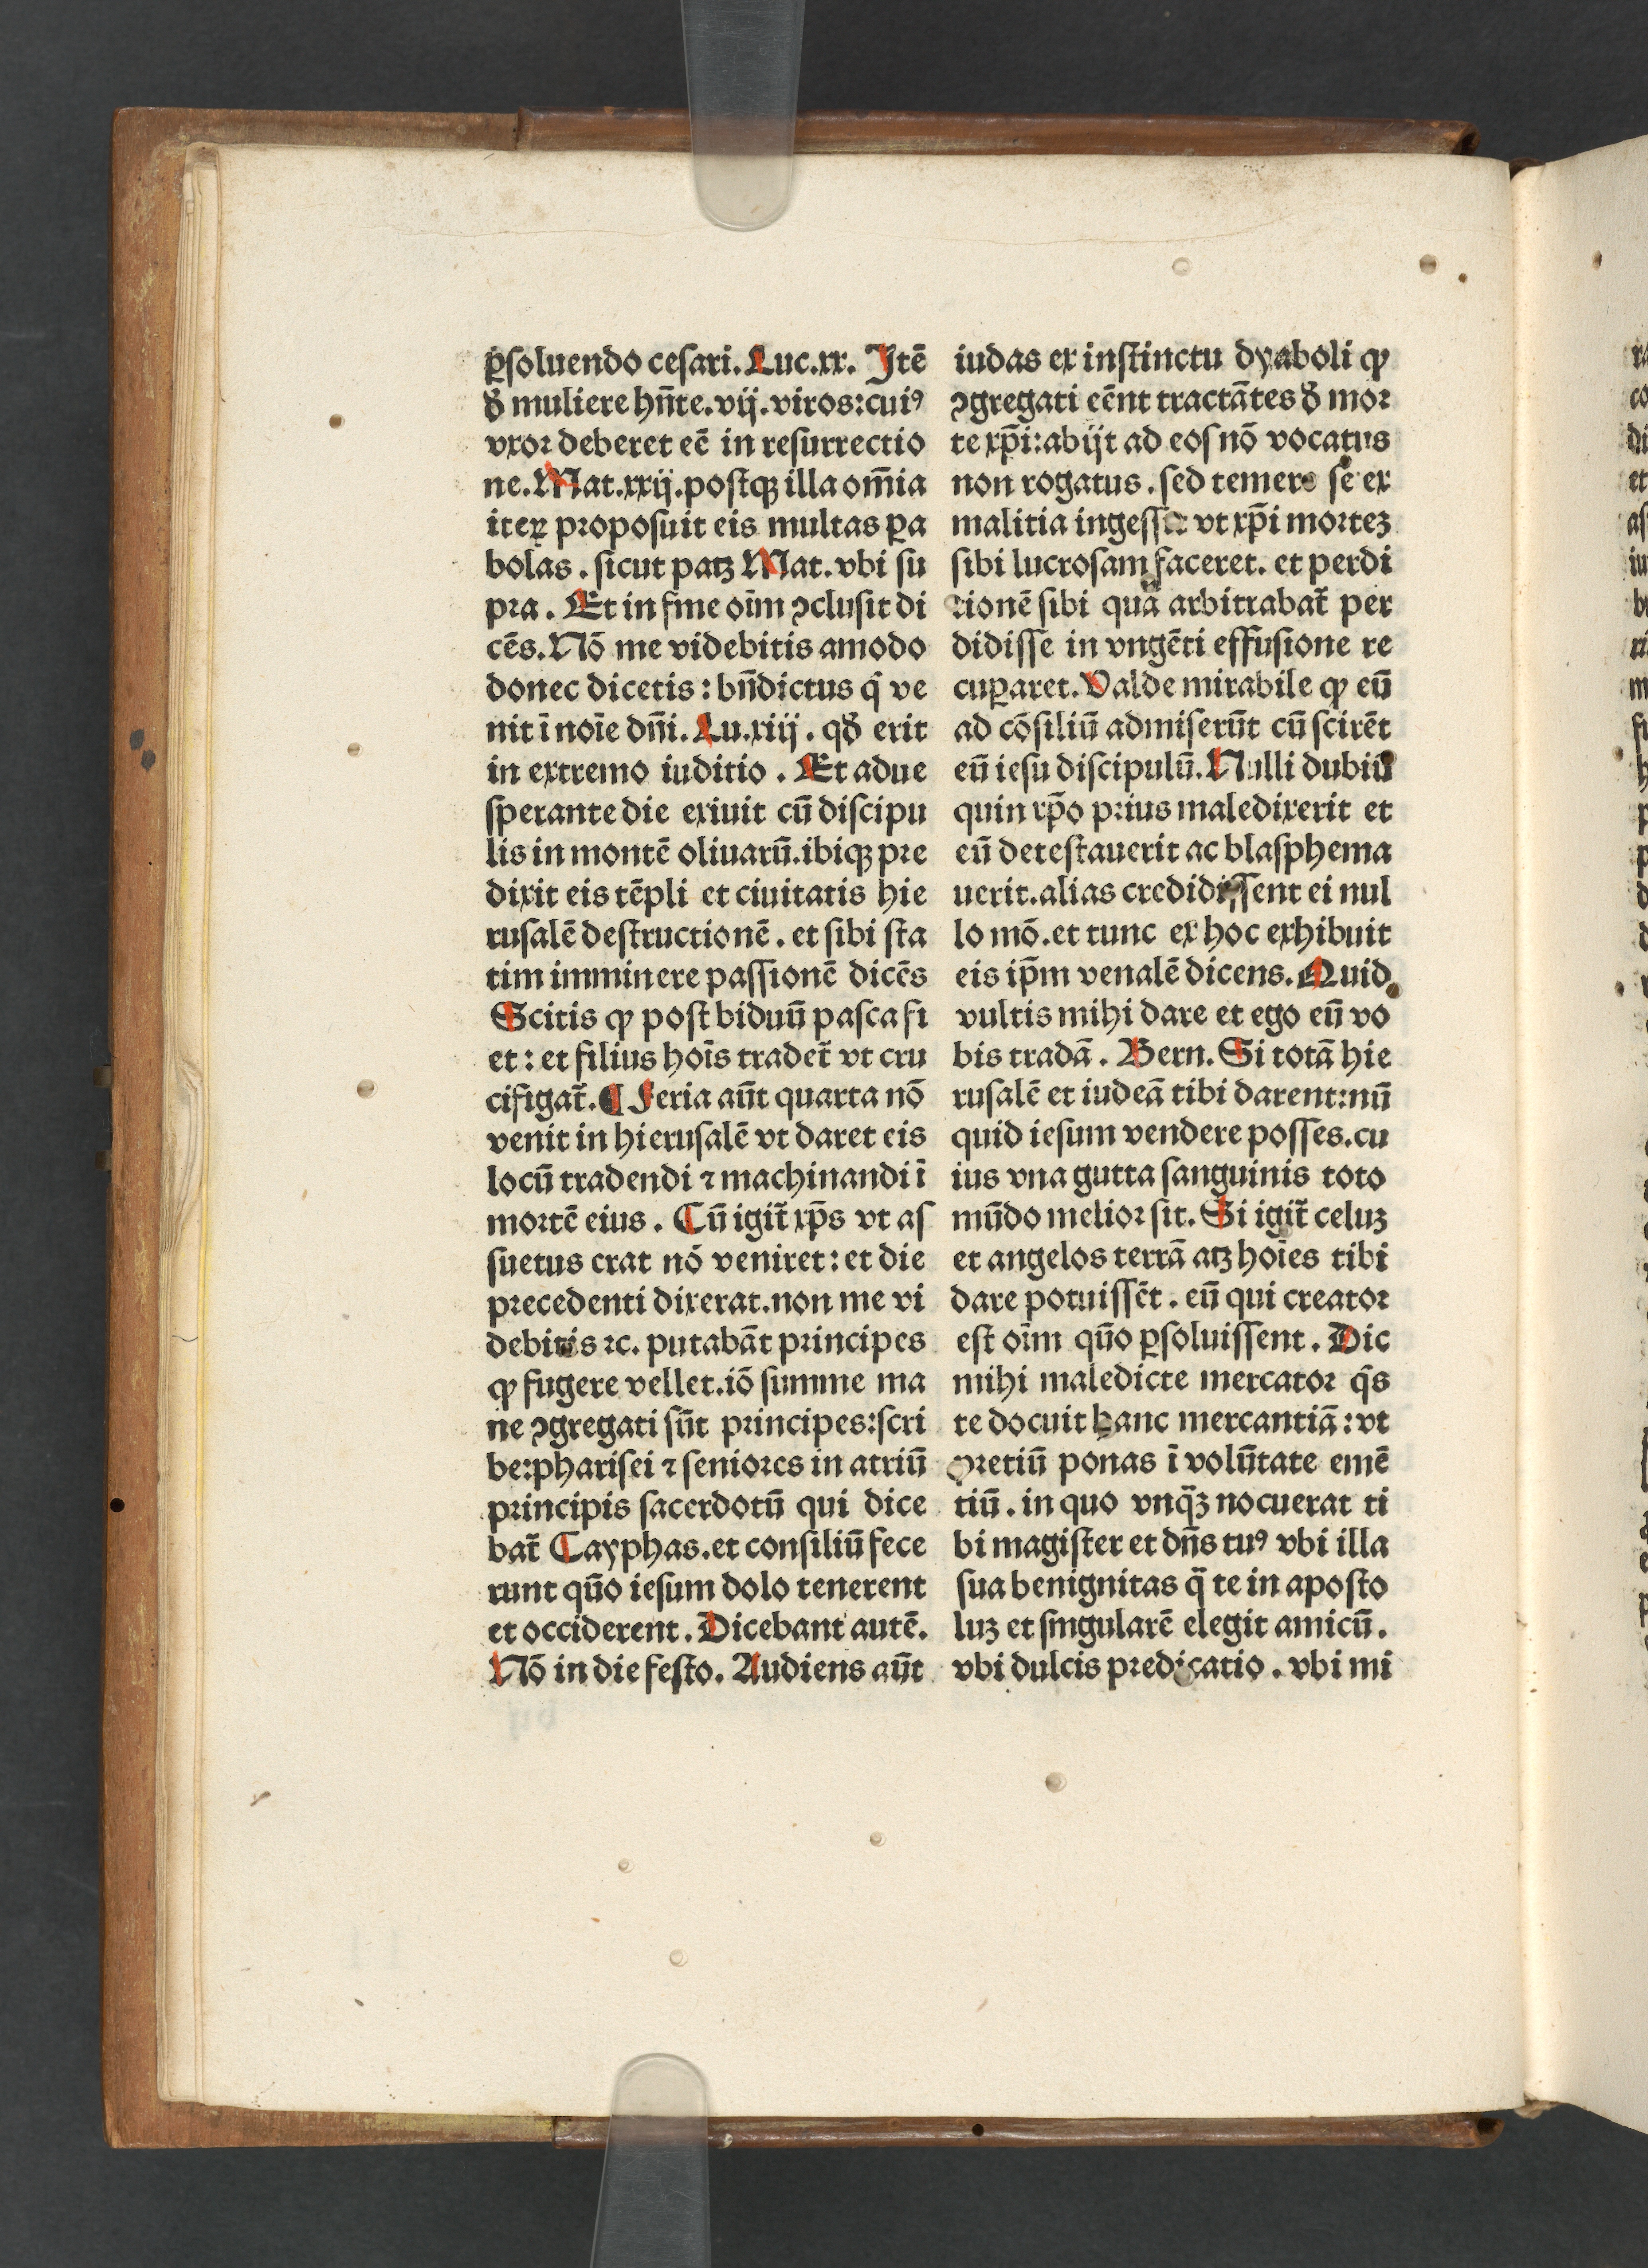 ꝑsoluendo cesari. Luc.xx. Jtē
ꝺ̄ muliere hn̄te.vij.viros:cuiꝰ
vxor deberet eē in resurrectio
ne. Mat.xxij.postqꝫ illa om̄ia
iteꝝ proposuit eis multas ꝑa
bolas. sicut patꝫ Mat. vbi su
pra. Et in fine oīm ꝯclusit di
cēs. Nō me videbitis amodo
donec dicetis: bn̄dictus q̄ ve
nit ī noīe dn̄i. Lu.xiij. qđ erit
in extremo iuditio. Et adue
sperante die exiuit cū discipu
lis in montē oliuarū. ibiqꝫ pre
dixit eis tēpli et ciuitatis hie
rusalē destructionē. et sibi sta
tim imminere passionē dicēs
Scitis ꝙ post biduū pasca fi
et: et filius hoīs tradet̄ vt cru
cifigat̄. ¶ Feria aūt quarta nō
venit in hierusalē vt daret eis
locū tradendi ⁊ machinandi ī
mortē eius. Cū igit̄ xp̄s vt as
suetus erat nō veniret: et die
precedenti dixerat. non me vi
debitis ⁊c. putabāt principes
ꝙ fugere vellet. iō summe ma
ne ꝯgregati sūt principes: scri
be: pharisei ⁊ seniores in atriū
principis sacerdotū qui dice
bat̄ Cayphas. et consiliū fece
runt quō iesum dolo tenerent
et occiderent. Dicebant autē.
Nō in die festo. Audiens aūt
iudas ex instinctu dyaboli ꝙ
ꝯgregati eēnt tractātes ꝺ̄ mor
te xp̄i: abijt ad eos nō vocatus
non rogatus. sed temere se ex
malitia ingessit vt xp̄i morteꝫ
sibi lucrosam faceret. et perdi
tionē sibi quā arbitrabat̄ per
didisse in vngēti effusione re
cuꝑaret. Valde mirabile ꝙ eū
ad cōsiliū admiserūt cū scirēt
eū iesu discipulū. Nulli dubiū
quin xp̄o prius maledixerit et
eū detestauerit ac blasphema
uerit. alias credidissent ei nul
lo mō. et tunc ex hoc exhibuit
eis ip̄m venalē dicens. Quid
vultis mihi dare et ego eū vo
bis tradā. Bern. Si totā hie
rusalē et iudeā tibi darent: nū
quid iesum vendere posses. cu
ius vna gutta sanguinis toto
mūdo melior sit. Si igit̄ celuꝫ
et angelos terrā atꝫ hoīes tibi
dare potuissēt. eū qui creator
est oīm quō ꝑsoluissent. Dic
mihi maledicte mercator q̄s
te docuit hanc mercantiā: vt
pretiū ponas ī volūtate emē
tiū. in quo vnq̄ꝫ nocuerat ti
bi magister et dn̄s tuꝰ vbi illa
sua benignitas q̄ te in aposto
luꝫ et singularē elegit amicū.
vbi dulcis predicatio. vbi mi